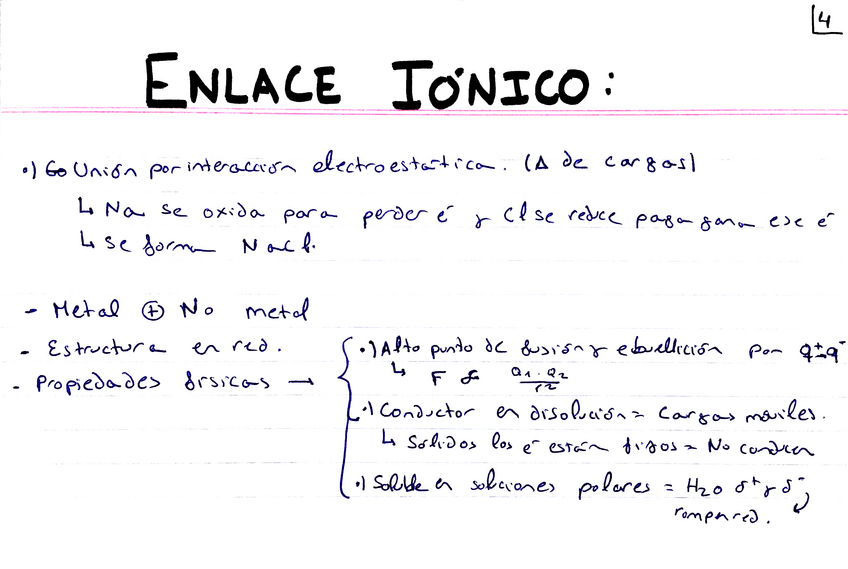 4
ENLACE IÓNICO:
•) Unión por interacción electroestática. (Δ de cargas)
↳ Na se oxida para perder é y Cl se reduce para gana ese é
↳ Se forma NaCl.
- Metal ⊕ No metal
- Estructura en red.
- Propiedades físicas →
•) Alto punto de fusión y ebullición por q⁺ q⁻
↳ F α Q1·Q2/r²
•) Conductor en disolución = Cargas móviles.
↳ Sólidos los é están fijos = No conducen
•) Soluble en soluciones polares = H2O δ⁺ y δ⁻
rompen red.